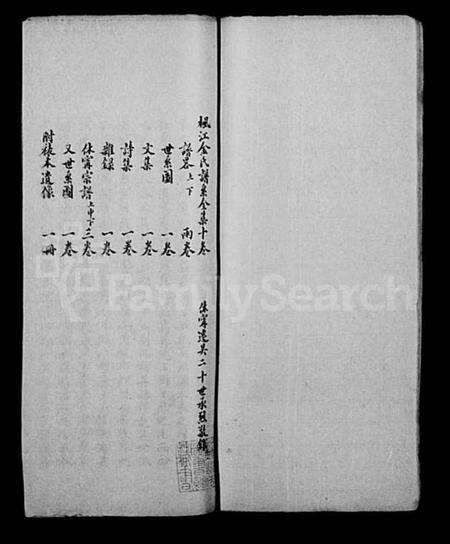 楓江金氏譜系全集十卷
譜畧上下 兩卷
世系圖 一卷
文集 一卷
詩集 一卷
雜錄 一卷
休寗宗譜上中下三卷
又世系圖 一卷
附裱本遺像 一冊
休寗遷吳二十世承烈敬錄
FamilySearch